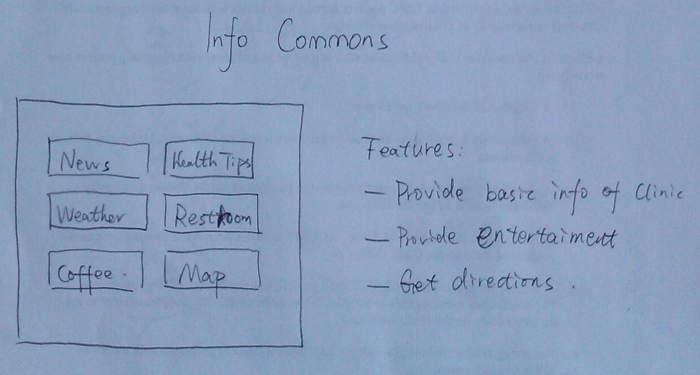 Info Commons
News
Health Tips
Weather
Restroom
Coffee.
Map
Features:
— Provide basic info of Clinic
— Provide entertaiment
— Get directions.